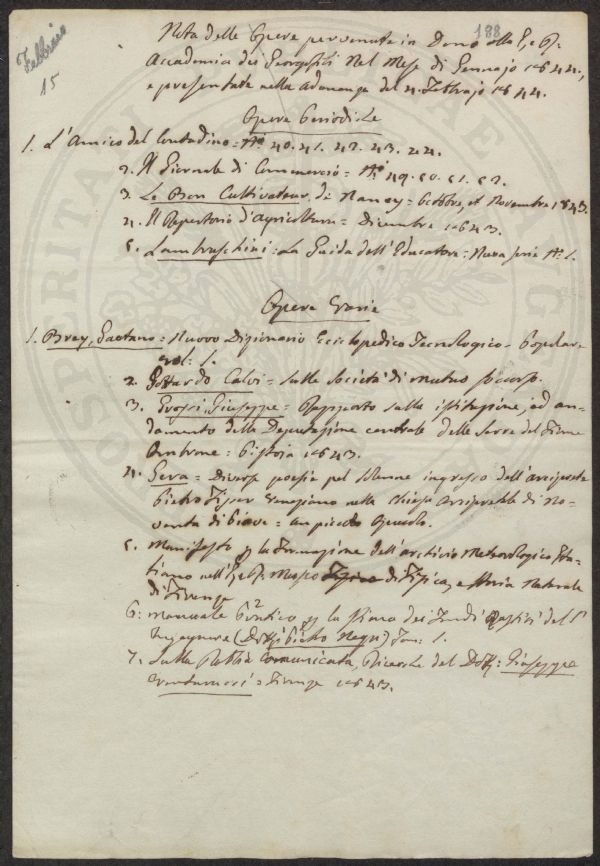 Febbraio
15
188
Nota delle Opere pervenute in Dono alla I. e R.
Accademia dei Georgofili Nel Mese di Gennajo 1844.,
e presentate nella Adunanza del 4. Febbrajo 1844.
Opere Periodiche
1. L'Amico del Contadino = Ni. 40. 41. 42. 43. 44.
2. Il Giornale di Commercio = Ni. 49. 50. 51. 52.
3. Le Bon Cultivateur, di Nancy = Octobre, et Novembre 1843.
4. Il Repertorio d'Agricoltura = Dicembre 1843.
5. Lambruschini = La Guida dell'Educatore = Nuova serie No. 1.
Opere Varie
1. Brey, Gaetano = Nuovo Dizionario Enciclopedico Tecnologico - Popolare
vol: 1.
2. Gottardo Calvi = Sulle Società di mutuo soccorso.
3. Grossi, Giuseppe = Rapporto sulla istituzione, ed an-
damento della Deputazione centrale delle Serre del Fiume
Ombrone = Pistoia 1843.
4. Gera = Diverse poesie pel solenne ingresso dell'arciprete
Pietro veneziano nella Chiesa Arcipretale di No-
venta di Piave = un piccolo Opuscolo.
5. Manifesto p la Formazione dell'archivio Meteorologico Ita-
liano nell'I. e R. Museo di Fisica, e Storia Naturale
di Firenze
6: manuale Pratico p la Stima dei Fondi Rustici del S.r
Ingegnere (Dott: Pietro Negri) Tom: 1.
7. Sulla Rabbia Comunicata, Ricerche del Dott: Giuseppe
Venturucci = Firenze 1843.